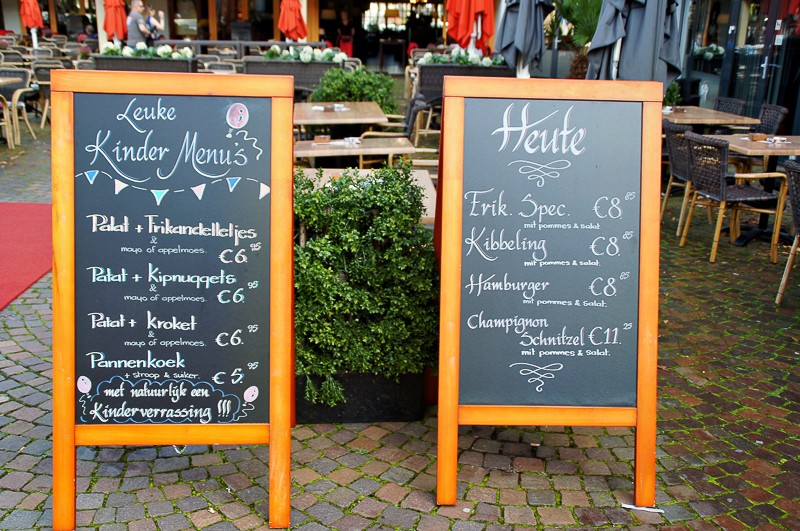 Leuke
Kinder Menu's
Patat + Frikandelletjes
&
mayo of appelmoes.
€6.95
Patat + Kipnuggets
&
mayo of appelmoes.
€6.95
Patat + Kroket
&
mayo of appelmoes.
€6.95
Pannenkoek
+ stroop & suiker.
€5.95
met natuurlijk een
Kinderverrassing !!!
Heute
Frik. Spec. €8.85
mit pommes & salat.
Kibbeling €8.85
mit pommes & salat.
Hamburger €8.85
mit pommes & salat.
Champignon
Schnitzel €11.25
mit pommes & salat.